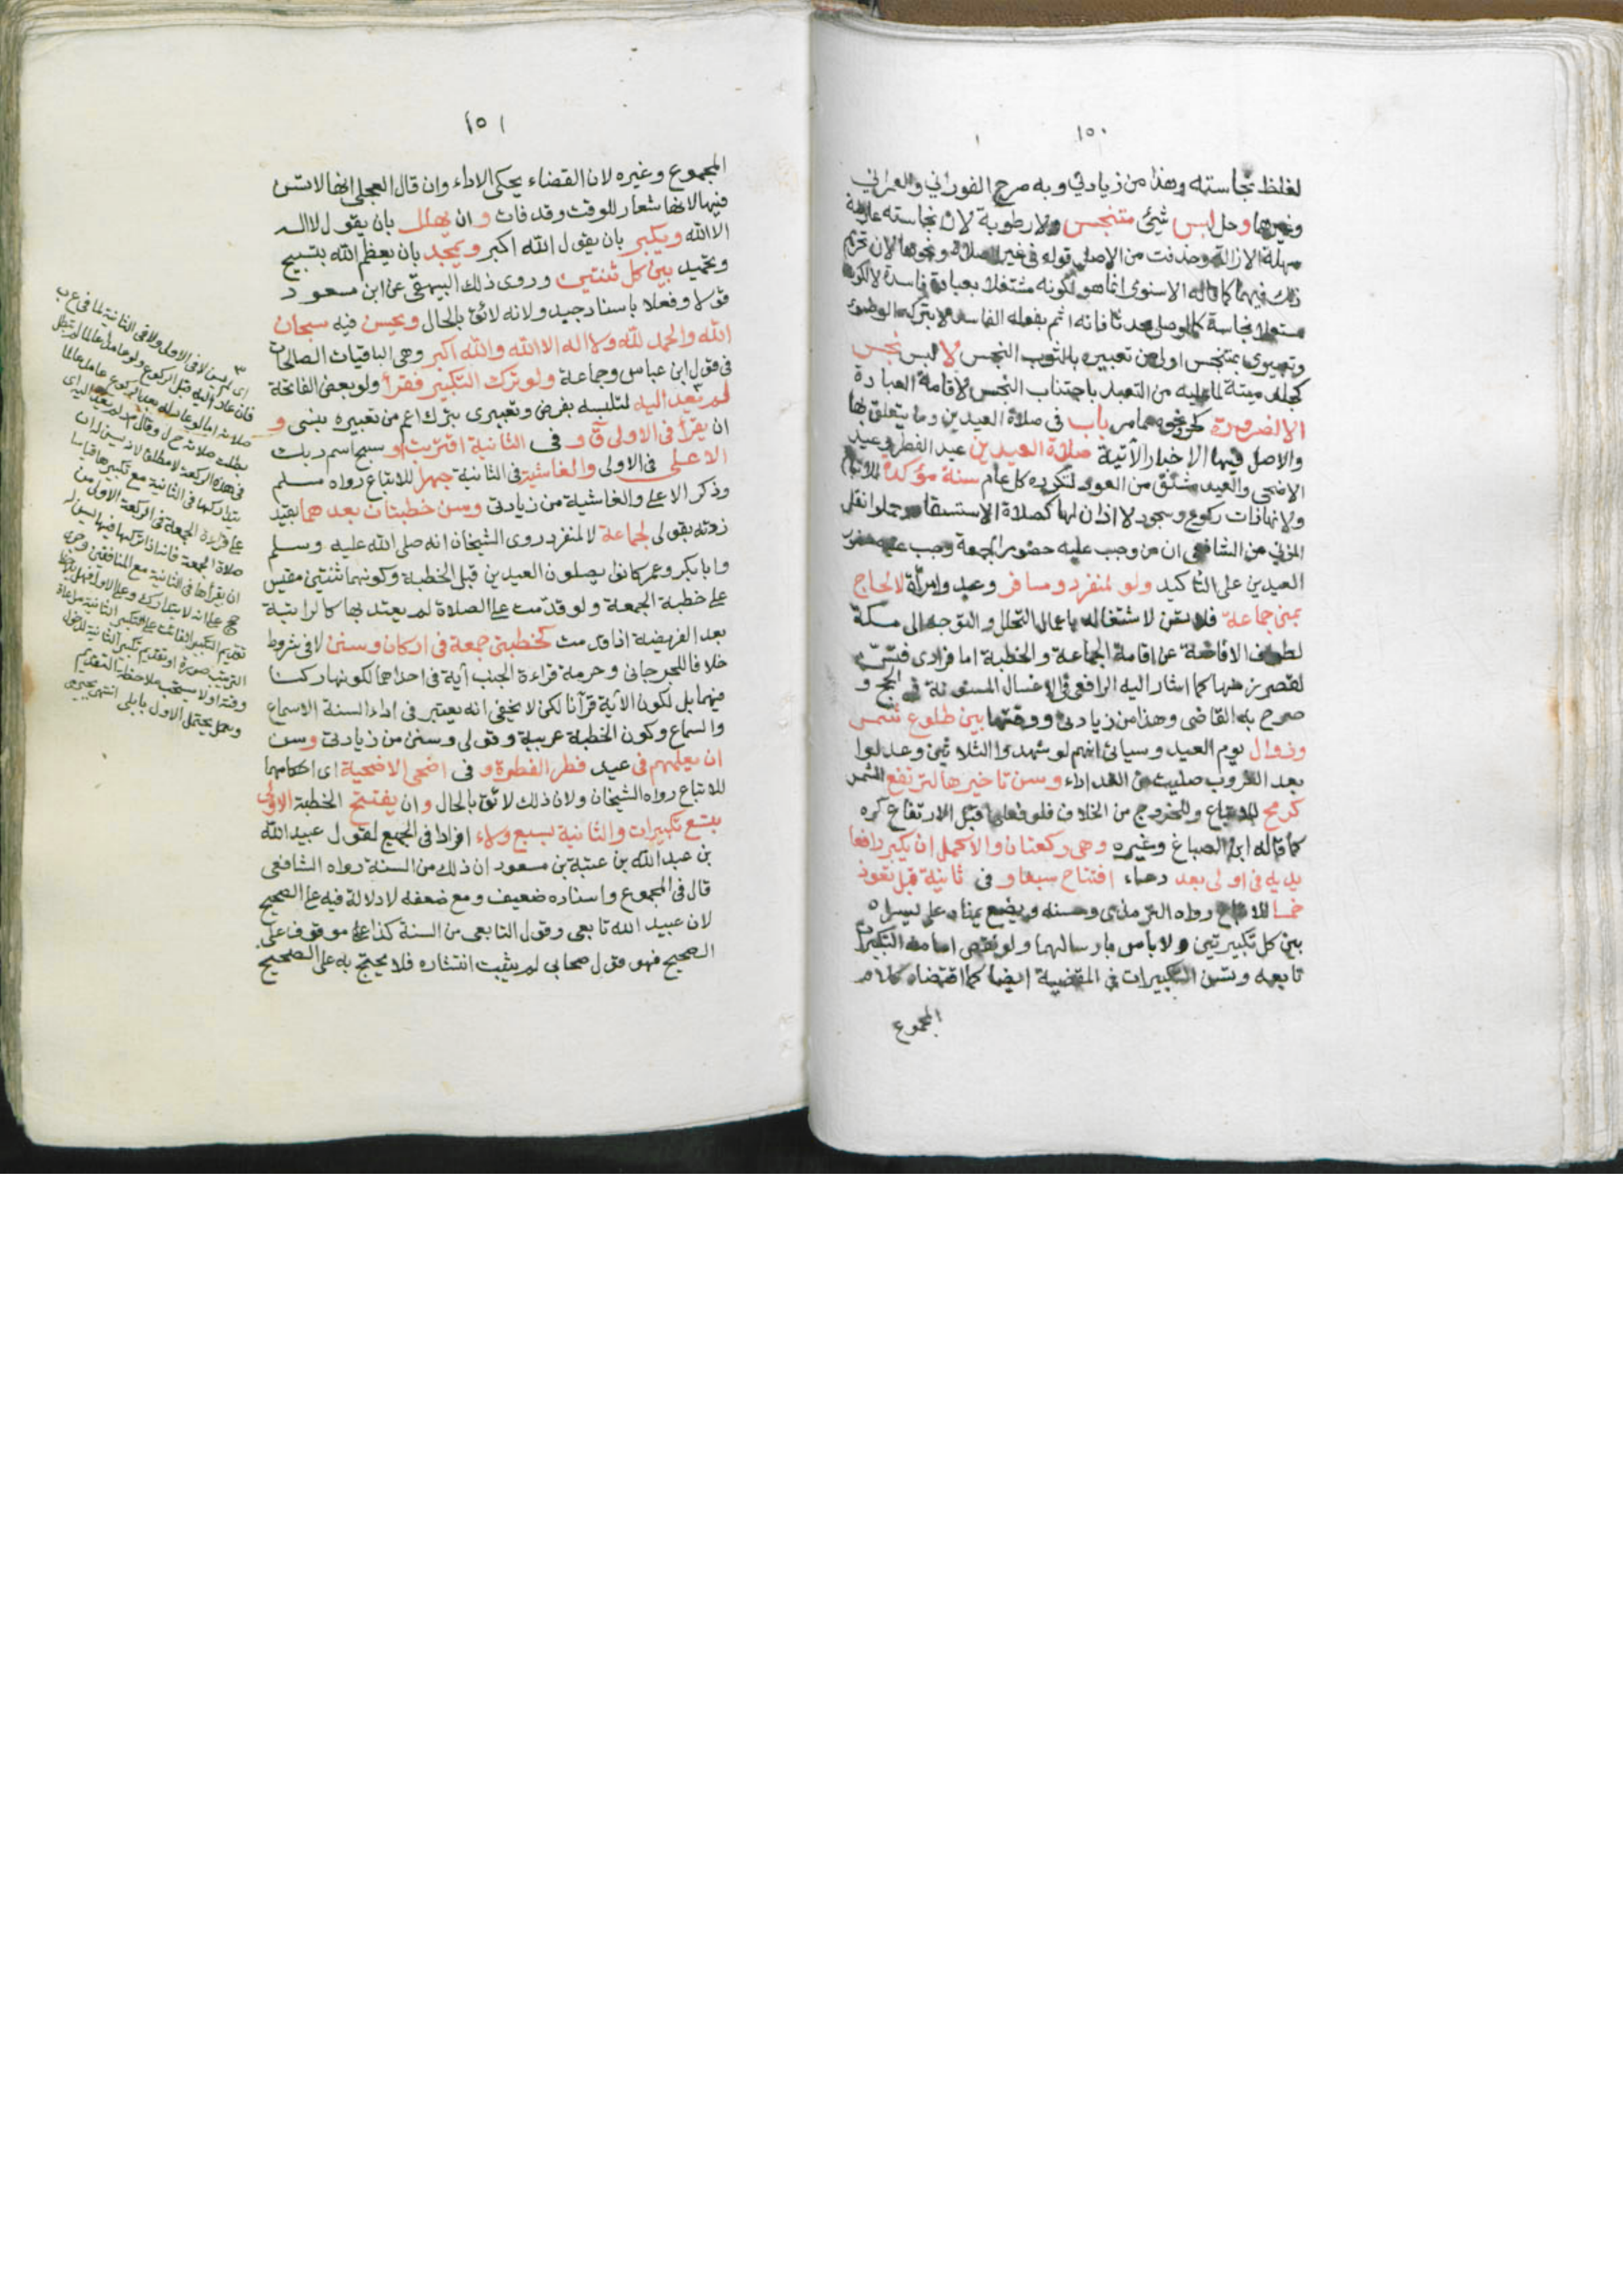 ١٥٠
لغلظ نجاسته وهذا من زيادتي وبه صرح الفوراني والعمراني
وغيرهما وحل لبس شئ متنجس ولا رطوبة لان نجاسته عارضة
سهلة الازالة وحذفت من الاصل قوله في غير الصلاة ونحوها لان تحريم
ذلك فيهما كما قاله الاسنوى انما هو لكونه مشتغلا بعبادة فاسدة لا لكونه
مستعملا نجاسة كما لو صلى محدثا فانه اثم بفعله الفاسد لا بتركه الوضوء
وتعبيرى بمتنجس اولى من تعبيره بالثوب النجس لا لبس نجس
كجلد ميتة لما عليه من التعبد باجتناب النجس لاقامة العبادة
الا لضرورة كحر ونحوه مما مر باب في صلاة العيدين وما يتعلق بها
والاصل فيها الاخبار الآتية صلاة العيدين عيد الفطر وعيد
الاضحى والعيد مشتق من العود لتكرره كل عام سنة مؤكدة للاتباع
ولانها ذات ركوع وسجود لا اذان لها كصلاة الاستسقاء وحملوا نقل
المزني عن الشافعى ان من وجب عليه حضور الجمعة وجب عليه حضور
العيدين على التاكيد ولو لمنفرد ومسافر وعبد وامرأة لا لحاج
بمنى جماعة فلا تسن لاشتغاله باعمال التحلل والتوجه الى مكة
لطواف الافاضة عن اقامة الجماعة والخطبة اما فرادى فتسن
لقصر زمنها كما اشار اليه الرافعى في الاغسال المسنونة في الحج و
صرح به القاضى وهذا من زيادتى ووقتها بين طلوع شمس
وزوال يوم العيد وسياتى انهم لو شهدوا الثلاثين وعدلوا
بعد الغروب صليت من الغد اداء وسن تاخيرها لترتفع الشمس
كرمح للاتباع وللخروج من الخلاف فلو فعلها قبل الارتفاع كره
كما قاله ابن الصباغ وغيره وهى ركعتان والاكمل ان يكبر رافعا
يديه في اولى بعد دعاء افتتاح سبعا و فى ثانية قبل تعوذ
خمسا للاتباع رواه الترمذى وحسنه ويضع يمناه على يسراه
بين كل تكبيرتين ولا باس بارسالهما ولو نقص امامه التكبيرات
تابعه وتسن التكبيرات في المقضية ايضا كما اقتضاه كلام
المجموع
١٥١
المجموع وغيره لان القضاء يحكى الاداء وان قال العجلى انها لا تسن
فيها لانها شعار للوقت وقد فات و ان يهلل بان يقول لا اله
الا الله ويكبر بان يقول الله اكبر ويمجد بان يعظم الله بتسبيح
وتحميد بين كل ثنتين وروى ذلك البيهقى عن ابن مسعود
قولا وفعلا باسناد جيد ولانه لائق بالحال ويحسن فيه سبحان
الله والحمد لله ولا اله الا الله والله اكبر وهى الباقيات الصالحات
فى قول ابن عباس وجماعة ولو ترك التكبير فقرأ ولو بعض الفاتحة
لم يعد اليه لتلبسه بفرض وتعبيرى بترك اعم من تعبيره بنسى و
ان يقرأ فى الاولى ق و فى الثانية اقتربت او سبح اسم ربك
الاعلى فى الاولى والغاشية فى الثانية جهرا للاتباع رواه مسلم
وذكر الاعلى والغاشية من زيادتى وسن خطبتان بعدهما بقيد
زدته بقولى لجماعة لا لمنفرد روى الشيخان انه صلى الله عليه وسلم
وابا بكر وعمر كانوا يصلون العيدين قبل الخطبة وكونهما ثنتين مقيس
على خطبة الجمعة ولو قدمت على الصلاة لم يعتد بها كالراتبة
بعد الفريضة اذا قدمت كخطبتى جمعة فى اركان وسنن لا فى شروط
خلافا للجرجانى وحرمة قراءة الجنب آية فى احداهما لكونها ركنا
فيهما بل لكون الآية قرآنا لكن لا يخفى انه يعتبر فى اداء السنة الاسماع
والسماع وكون الخطبة عربية وقولى وسنن من زيادتى وسن
ان يعلمهم فى عيد فطر الفطرة و فى اضحى الاضحية اى احكامهما
للاتباع رواه الشيخان ولان ذلك لائق بالحال و ان يفتتح الخطبة الاولى
بتسع تكبيرات والثانية بسبع ولاء افرادا فى الجميع لقول عبيد الله
بن عبد الله بن عتبة بن مسعود ان ذلك من السنة رواه الشافعى
قال فى المجموع واسناده ضعيف ومع ضعفه لا دلالة فيه على الصحيح
لان عبيد الله تابعى وقول التابعى من السنة كذا موقوف على
الصحيح فهو قول صحابى لم يثبت انتشاره فلا يحتج به على الصحيح
٣
اى ليس لا فى الاولى ولا فى الثانية لما فى
فان عاد اليه قبل الركوع ولو عامدا عالما لم تبطل
صلاته اما لو عاد له بعد الركوع عامدا عالما
بطلت صلاته ح ل وقال لم يعد اليه اى
فى هذه الركعة لا مطلقا لانه يسن له ان
يتداركها فى الثانية مع تكبيرها قياسا
على قراءة الجمعة فى الركعة الاولى من
صلاة الجمعة فانه اذا تركها فيها يسن له
ان يقرأها فى الثانية مع المنافقين
على انه لا يتداركه وعلى الاول فهل يلاحظ
تقديم التكبير الفائت على تكبير الثانية مراعاة
الترتيب صورة او تقديم تكبير الثانية لدخول
وقته او لا يستحب ملاحظة التقديم
يحتمل الاول بابلى انتهى بجيرمى